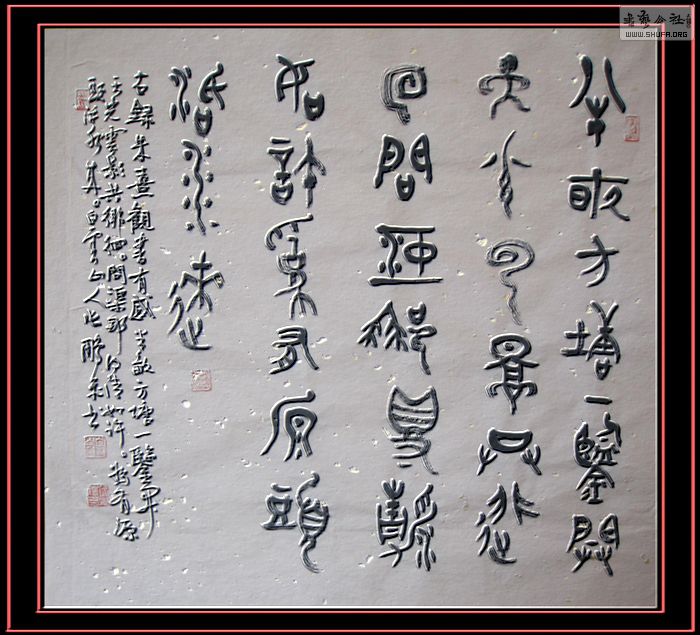 半畝方塘一鑒開
天光雲影共徘
徊問渠那得清
如許為有原頭
活水來
古錄朱熹觀書有感半畝方塘一鑒開
天光雲影共徘徊。問渠那得清如許。為有源
頭活水來。白雲山人
书艺公社
WWW.SHUFA.ORG